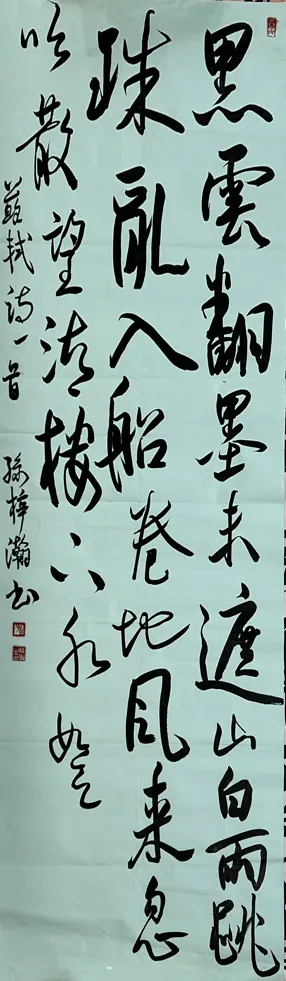 黑雲翻墨未遮山白雨跳
珠亂入船卷地風来忽
吹散望湖樓下水如天
蘇軾詩一首 孫梓瀚书